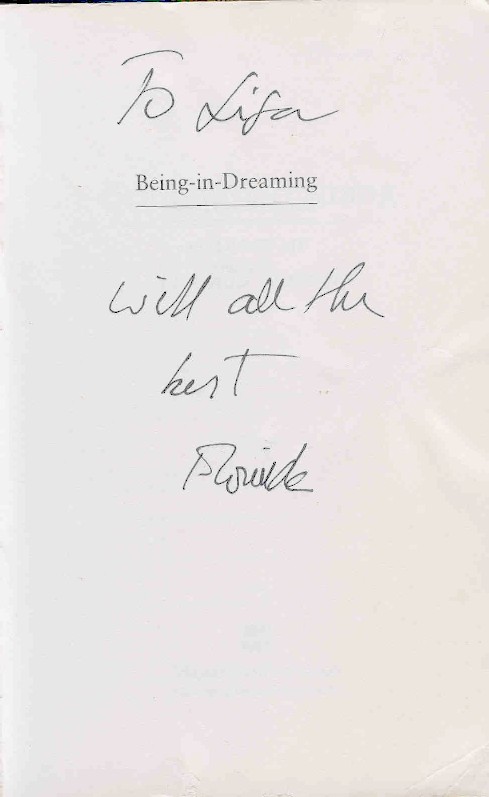 To Lisa
Being-in-Dreaming
with all the
best
Florinda